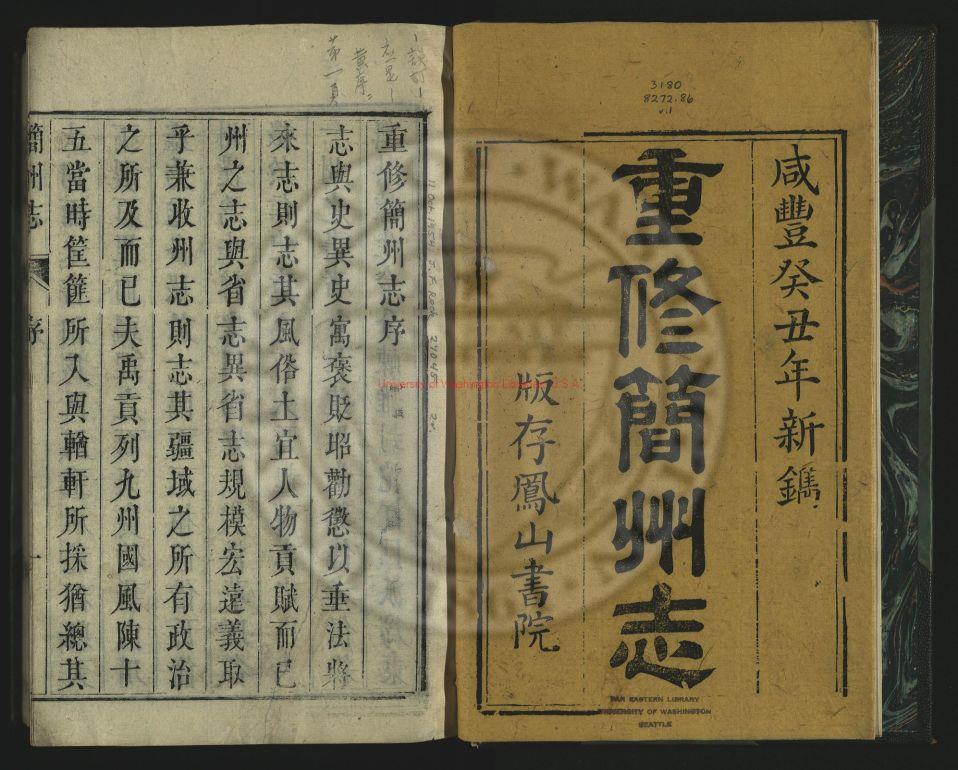 3180
8272.86
v.1
咸豐癸丑年新鐫
重修簡州志
版存鳳山書院
FAR EASTERN LIBRARY
UNIVERSITY OF WASHINGTON
SEATTLE
重修簡州志序
志與史異史寓褒貶昭勸懲以垂法將
來志則志其風俗土宜人物貢賦而已
州之志與省志異省志規模宏遠義取
乎兼收州志則志其疆域之所有政治
之所及而已夫禹貢列九州國風陳十
五當時筐篚所入與輶軒所採猶總其
簡州志
序
一
黃序
第一頁
University of Washington Libraries, U.S.A.